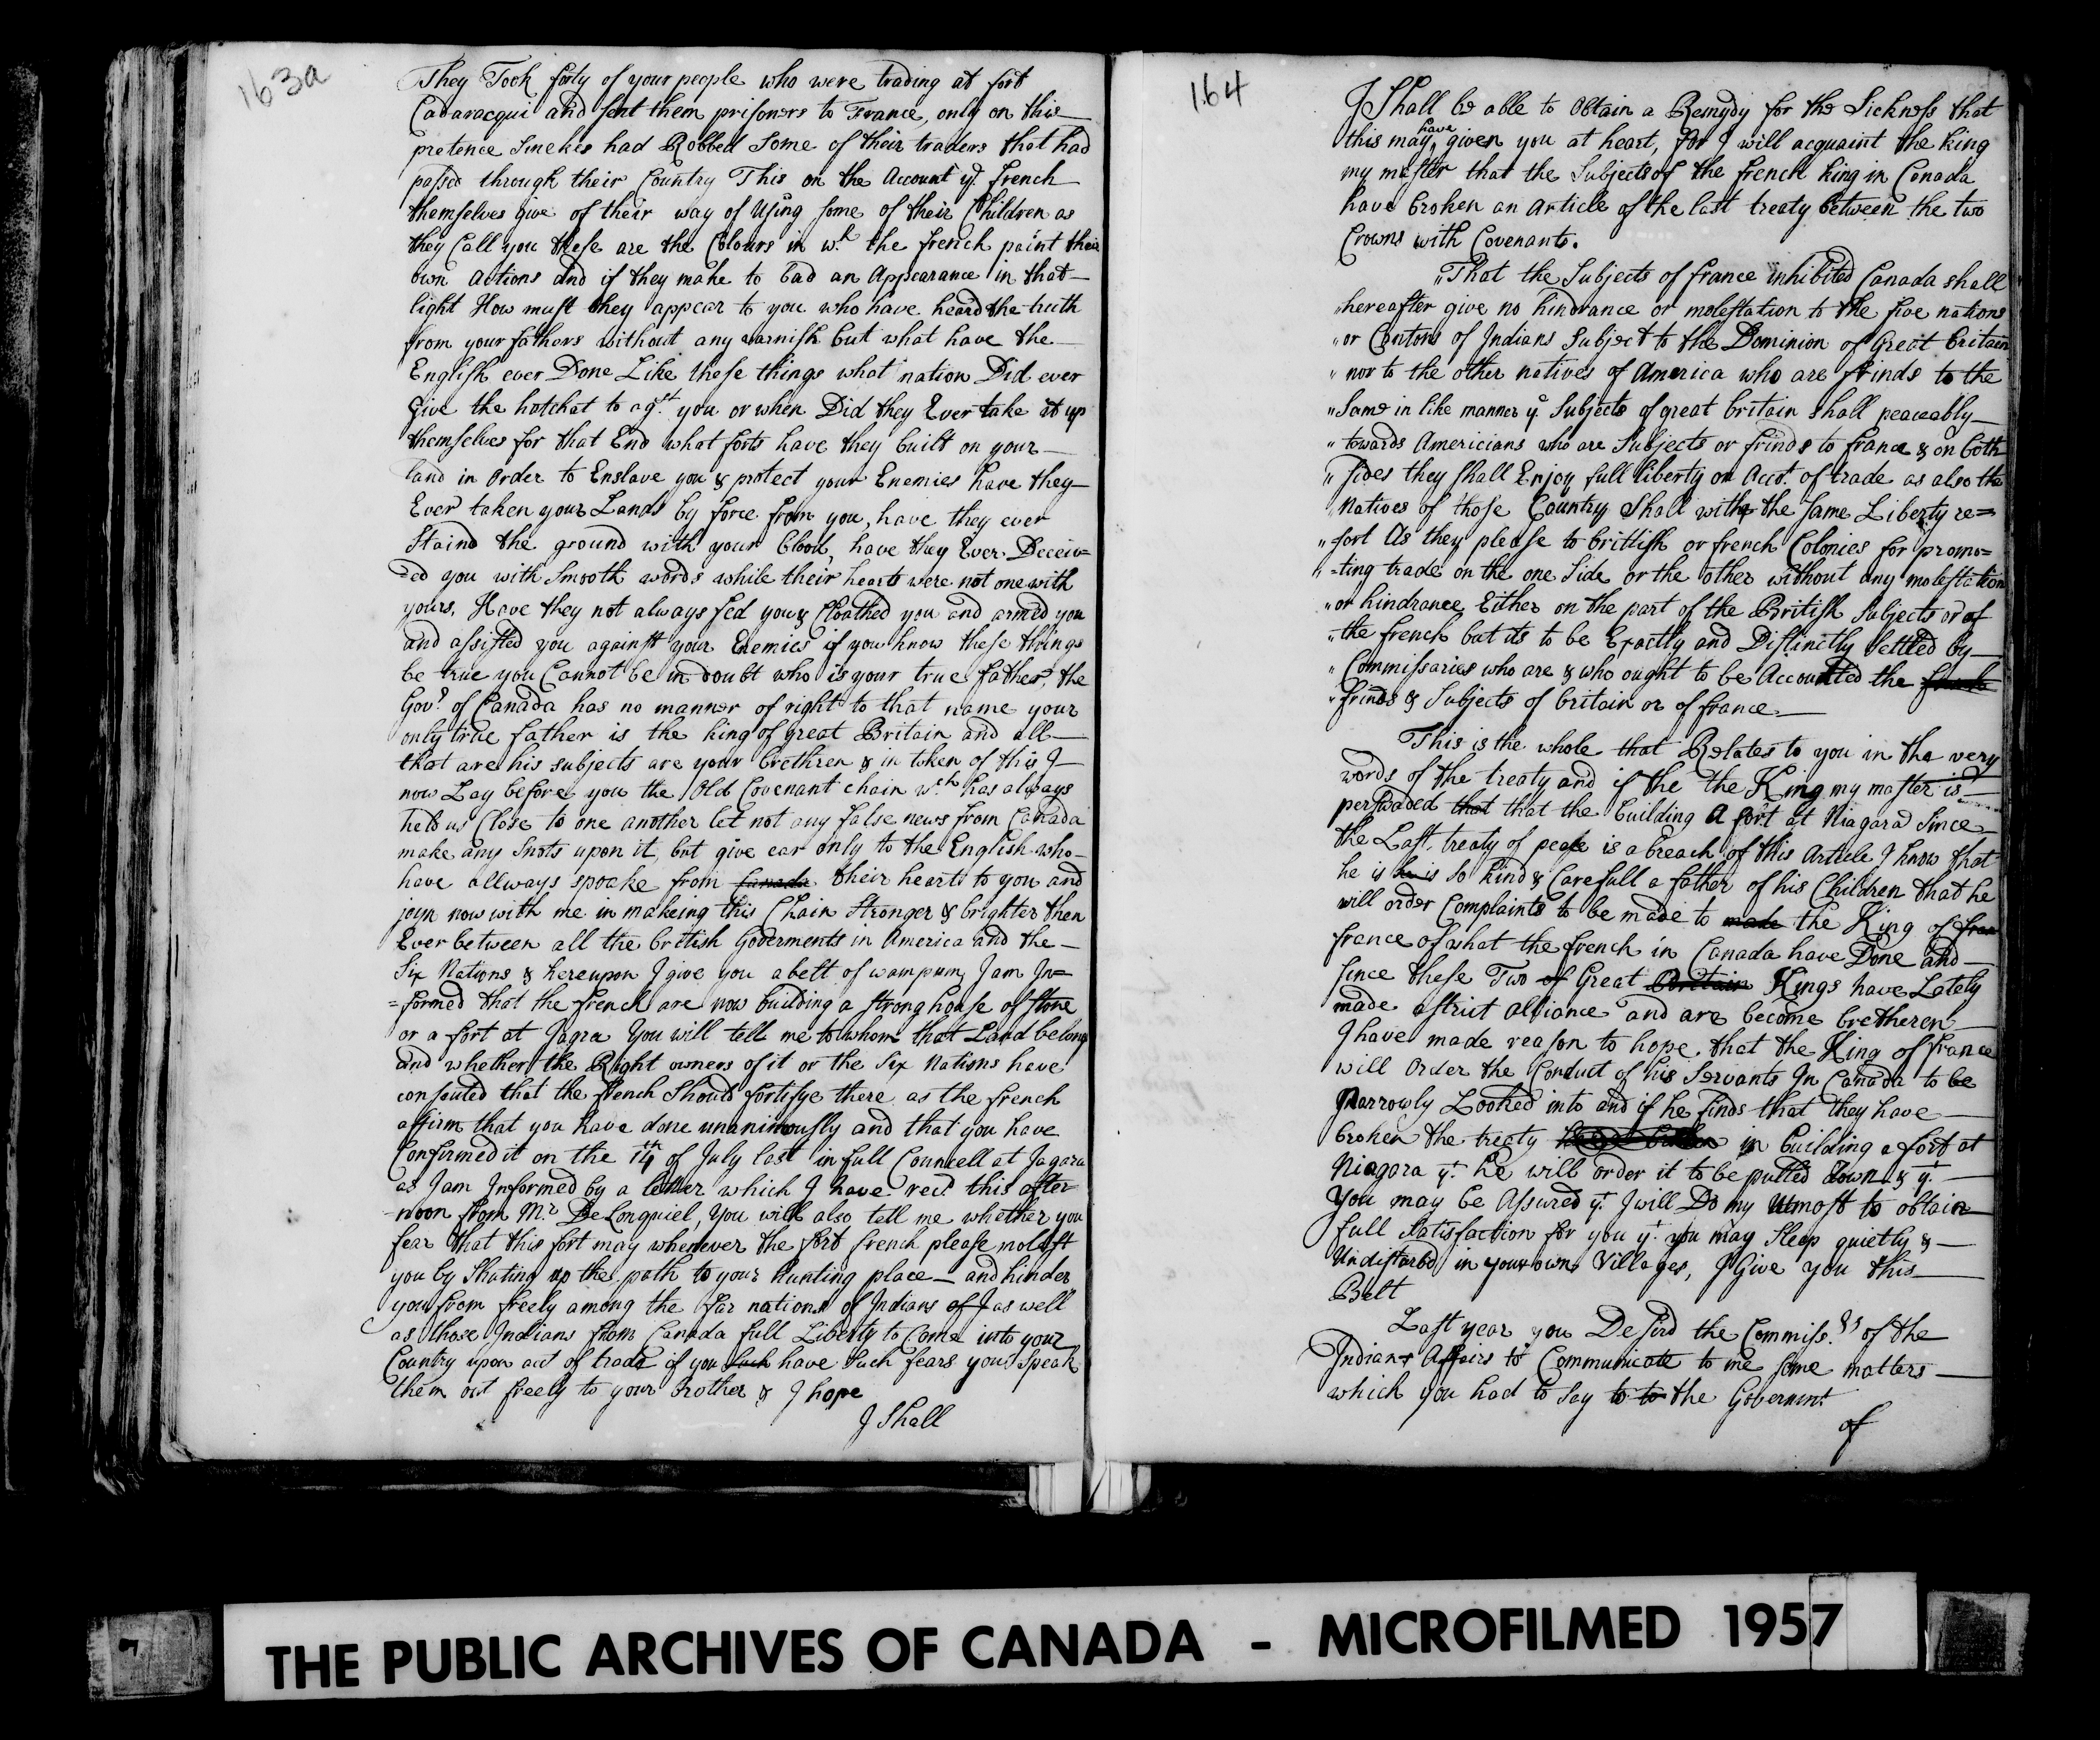 163a
They Took forty of your people who were trading at fort
Cadaracqui and sent them prisoners to France, only on this
pretence Sinekes had Robbed Some of their traders that had
passed through their Country This on the Account yd. french
themselves give of their way of Using some of their Children as
they Call you these are the Colours in wh the french paint their
own actions and if they make to bad an Appearance in that
light How must they appear to you who have heard the truth
from your fathers without any varnish but what have the
English ever Done Like these things what nation Did ever
give the hatchet to agst. you or when Did they Ever take it up
themselves for that End what forts have they built on your
land in Order to Enslave you & protect your Enemies have they
Ever taken your Lands by force from you, have they ever
Staind the ground with your blood, have they Ever Deceiv=
=ed you with Smooth words while their hearts were not one with
yours. Have they not always fed you & Cloathed you and armed you
and assisted you against your Enemies if you know these things
be true you Cannot be in doubt who is your true father, the
Govr. of Canada has no manner of right to that name your
only true father is the king of great Britain and all
that are his subjects are your brethren & in token of this I
now Lay before you the Old Covenant chain wch has always
held us Close to one another let not any false news from Canada
make any Snots upon it, but give ear only to the English who
have allways spoake from Canada their hearts to you and
joyn now with me in makeing this Chain Stronger & brighter then
Ever between all the british Goverments in America and the
Six Nations & hereupon I give you a belt of wampum, I am In=
=formed that the french are now building a strong house of stone
or a fort at Jagra You will tell me to whom that Land belong
and whether the Right owners of it or the Six Nations have
consented that the french Should fortifye there as the french
affirm that you have done unanimously and that you have
Confirmed it on the 14th of July last in full Councell at Jagara
as I am Informed by a letter which I have recd this after=
=noon from Mr. De Longuiel, You will also tell me whether you
fear that this fort may whenever the fort french please molest
you by Shuting up the path to your hunting place and hinder
you from freely among the far nations of Indians of I as well
as those Indians from Canada full Liberty to Come into your
Country upon act of trade if you such have Such fears you Speak
them out freely to your Brother & I hope
I Shall
164
I Shall be able to Obtain a Remydy for the Sickness that
this may have given you at heart, for I will acquaint the king
my master that the Subjects of the french king in Canada
have broken an Article of the last treaty between the two
Crowns with Covenants.
"That the Subjects of france inhibited Canada shall
"hereafter give no hindrance or molestation to the five nations
"or Cantons of Indians Subject to the Dominion of Great britain
"nor to the other natives of America who are frinds to the
"Same in like manner ye Subjects of great britain shall peaceably
"towards Americians who are Subjects or frinds to france & on both
"sides they shall Enjoy full liberty on Acct. of trade as also the
"Natives of those Country Shall with the same Liberty re=
"sort As they please to brittish or french Colonies for promo=
"=ting trade on the one Side or the other without any molestation
"or hindrance Either on the part of the British Subjects or of
"the french but its to be Exactly and Distinctly Settled by
"Commissaries who are & who ought to be Accounted the
"frinds & Subjects of britain or of france.
This is the whole that Relates to you in the very
words of the treaty and if the the King my master is
perswaded that that the building A fort at Niagara Since
the Last treaty of peace is a breach of this Article I know that
he is he is so kind & Carefull a father of his Children that he
will order Complaints to be made to made the King of fran
france of what the french in Canada have Done and
since these Two of Great Britain Kings have Lately
made a strict alliance and are become bretheren
I have made reason to hope that the King of france
will Order the Conduct of his Servants In Canada to be
Narrowly Looked into and if he finds that they have
broken the treaty in building a fort at
Niagara yt. he will order it to be pulled down & yt.
You may be Assured yt. I will Do my Utmost to obtain
full Satisfaction for you yt. you may Sleep quietly &
Undisturbd in your own Villages, I Give you this
Belt
Last year you Desird the Commissrs of the
Indians Affairs to Communicate to me some matters
which you had to Say to to the Governmt
of
THE PUBLIC ARCHIVES OF CANADA - MICROFILMED 1957